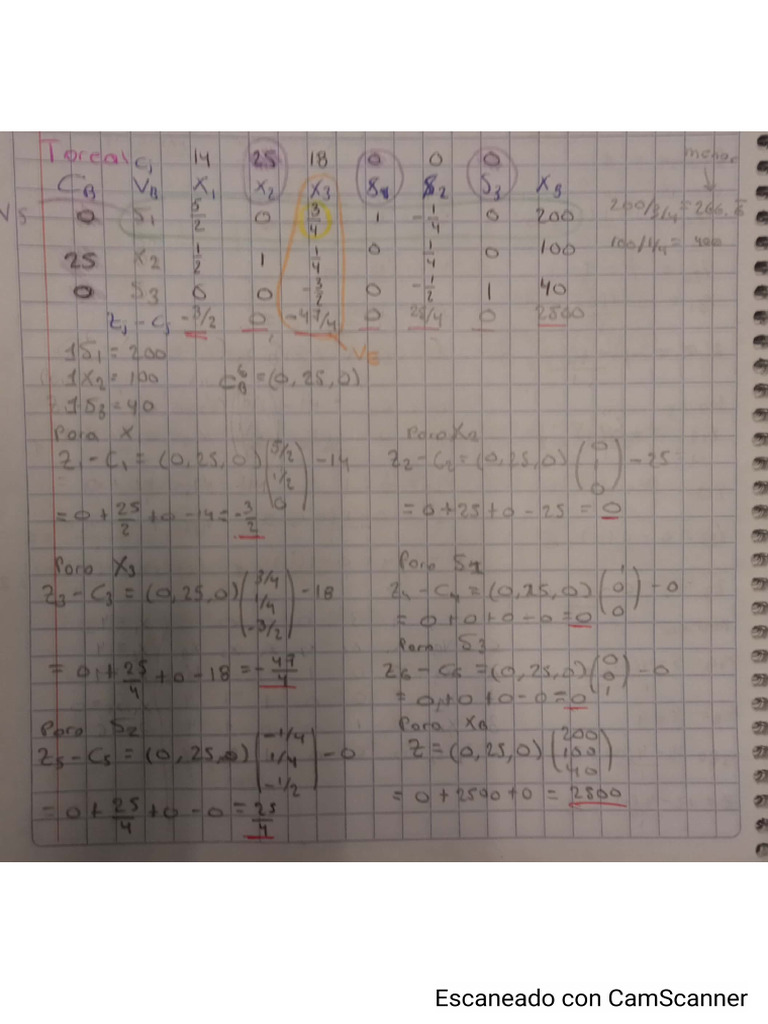 Torcal Cj 14 25 18 0 0 0 menor
CB VB X1 X2 X3 S1 S2 S3 XB
VS 0 S1 5/2 0 3/4 1 -1/4 0 200 200/3/4 = 266.6
25 X2 1/2 1 1/4 0 1/4 0 100 100/1/4 = 400
0 S3 0 0 -3/2 0 -1/2 1 40
Zj - Cj -3/2 0 -47/4 0 25/4 0 2500
VE
1S1 = 200
1X2 = 100 CB^t = (0, 25, 0)
1S3 = 40
Para X
Z1 - C1 = (0, 25, 0) (5/2 1/2 0) - 14
= 0 + 25/2 + 0 - 14 = -3/2
Para X2
Z2 - C2 = (0, 25, 0) (0 1 0) - 25
= 0 + 25 + 0 - 25 = 0
Para X3
Z3 - C3 = (0, 25, 0) (3/4 1/4 -3/2) - 18
= 0 + 25/4 + 0 - 18 = -47/4
Para S1
Z4 - C4 = (0, 25, 0) (1 0 0) - 0
= 0 + 0 + 0 - 0 = 0
Para S3
Z6 - C6 = (0, 25, 0) (0 0 1) - 0
= 0 + 0 + 0 - 0 = 0
Para S2
Z5 - C5 = (0, 25, 0) (-1/4 1/4 -1/2) - 0
= 0 + 25/4 + 0 - 0 = 25/4
Para XB
Z = (0, 25, 0) (200 100 40)
= 0 + 2500 + 0 = 2500
Escaneado con CamScanner